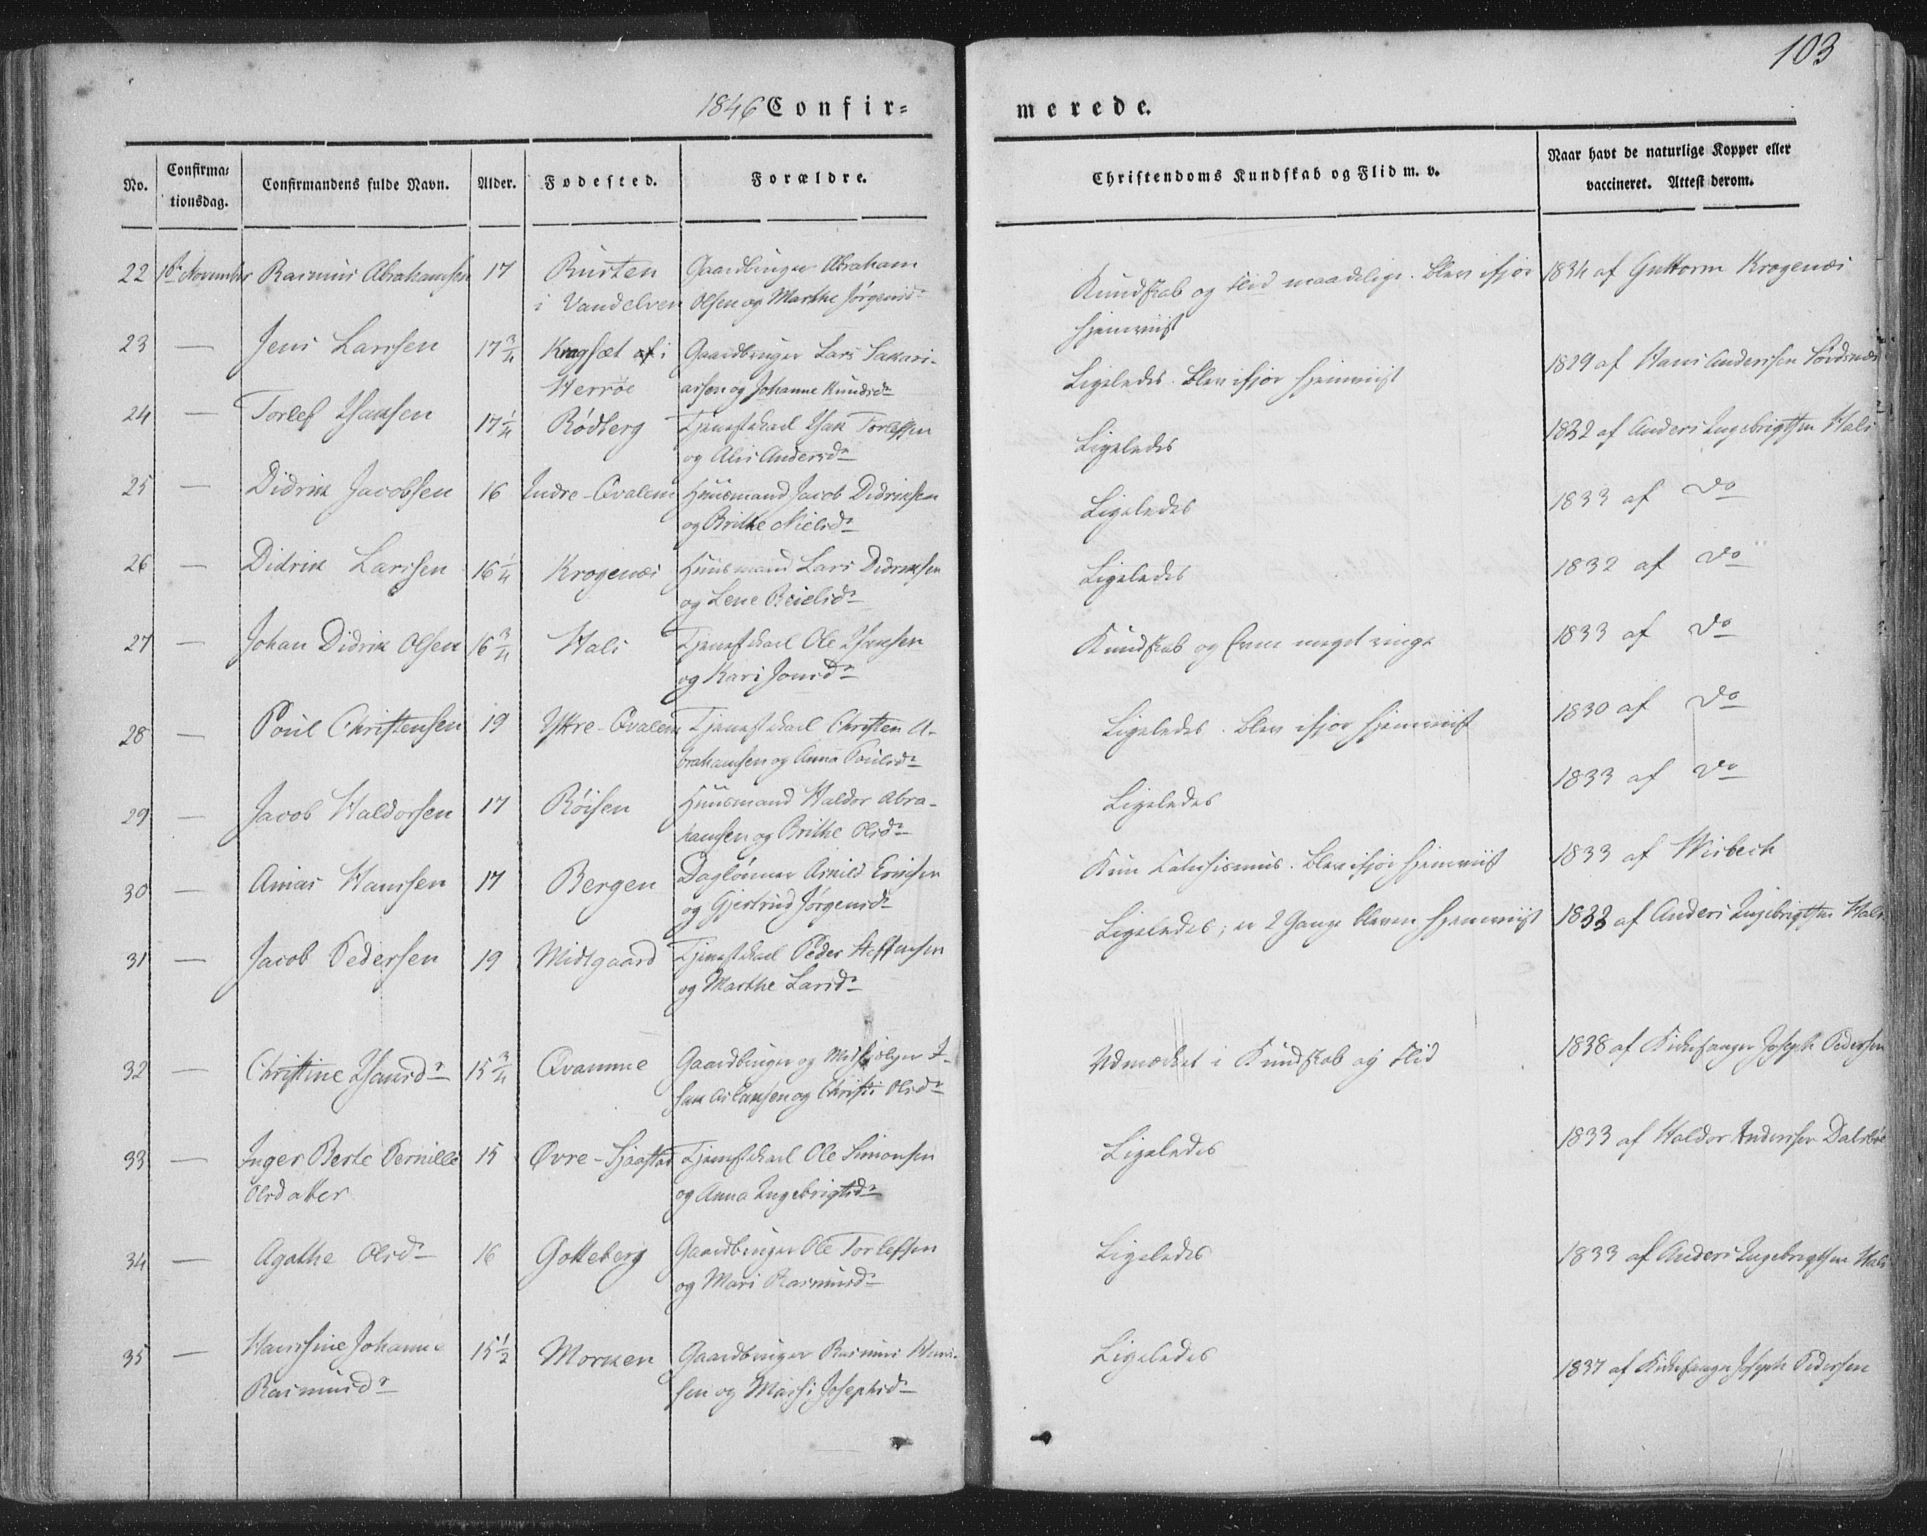 103
1846 Confir=
merede.
No.
Confirma=
tionsdag.
Confirmandens fulde Navn.
Alder.
Fødested.
Forældre.
Christendoms Kundskab og Flid m. v.
Naar havt de naturlige Kopper eller
vaccineret. Attest derom.
22 1ste November Rasmus Abrahamsen 17 Rusten Gaardbruger Abraham
i Vandelven Olsen og Marthe Jørgensdr
Kundskab og Flid maadelige. Blev ifjor
hjemviist
1834 af Guttorm Krogenæs
23 — Jens Larssen 17 3/4 Kragsæt i Gaardbruger Lars Sakari-
Herrøe assen og Johanne Knudsdr
Ligeledes. Blev ifjor hjemviist
1829 af Hans Anderssen
24 — Torlef Isaksen 17 1/4 Rødberg Tjenestekarl Isak Torlefsen
og Alis Andersdr
Ligeledes
1832 af Anders Ingebrigtsen Hals
25 — Didrik Jacobsen 16 Indre-Qvalem Huusmand Jacob Didriksen
og Brithe Nielsdr
Ligeledes
1833 af Do
26 — Didrik Larssen 16 1/4 Krogenæs Huusmand Lars Didriksen
og Lene
Ligeledes
1832 af Do
27 — Johan Didrik Olsen 16 3/4 Hals Tjenestekarl Ole Isaksen
og Kari Jonsdr
Kundskab og Evne meget ringe
1833 af Do
28 — Poul Christensen 19 Ystre-Qvalem Tjenestekarl Christen A-
brahamsen og Anna Poulsdr
Ligeledes. Blev ifjor hjemviist
1830 af Do
29 — Jacob Haldorsen 17 Røisen Huusmand Haldor Abra-
hamsen og Brithe Olsdr
Ligeledes
1833 af Do
30 — Hanssen 17 Bergen Daglønner
og Gjertrud Jørgensdr
Kun Katechismus. Blev ifjor hjemviist
1833 af Wisbech
31 — Jacob Pedersen 19 Midtgaard Tjenestekarl Peder Steffensen
og Marthe Larsdr
Ligeledes; er 2 Gange bleven hjemviist
1833 af Anders Ingebrigtsen Hals
32 — Christine Isaksdr 15 3/4 Qvamme Gaardbruger og Medhjelper I-
sak Aslaksen og Christi Olsdr
Udmærket i Kundskab og Flid
1838 af Kirkesanger Joseph Pedersen
33 — Inger Berte Pernille 15 Øvre-Fjaastad Tjenestekarl Ole Simonsen
Olsdatter og Anna Ingebrigtsdr
Ligeledes
1833 af Haldor Anderssen Dalsbøe
34 — Agathe Olsdr 16 Gotteberg Gaardbruger Ole Torlefsen
og Mari Rasmusdr
Ligeledes
1833 af Anders Ingebrigtsen Hals
35 — Hanssine Johanne 15 1/2 Morken Gaardbruger Rasmus Hans-
Rasmusdr sen og Massi Josephsdr
Ligeledes
1837 af Kirkesanger Joseph Pedersen